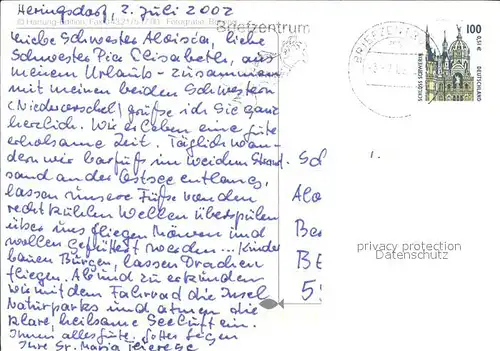 Heringsdorf, 2. Juli 2002
Briefzentrum
Liebe Schwester Aloisia, liebe
Schwester Pia Elisabeth, aus
meinem Urlaub - zusammen
mit meinen beiden Schwestern
grüße ich Sie ganz
herzlich. Wir erleben eine gute
erholsame Zeit. Täglich wan-
dern wir barfuß im weichen Strand-
sand an der Ostsee entlang,
lassen unsere Füße von den
recht kühlen Wellen überspülen
über uns fliegen Möwen und
wollen gefüttert werden... Kinder
bauen Burgen, lassen Drachen
fliegen. Ab und zu erkunden
wir mit dem Fahrrad die Insel
Naturparks und atmen die
klare, heilsame Seeluft ein.
Ihnen alles Gute. Gottes Segen
Ihre Sr. Maria
BRIEFZENTRUM
100
0,51€
DEUTSCHLAND
SCHWERINER SCHLOSS
Alo
privacy protection
Datenschutz